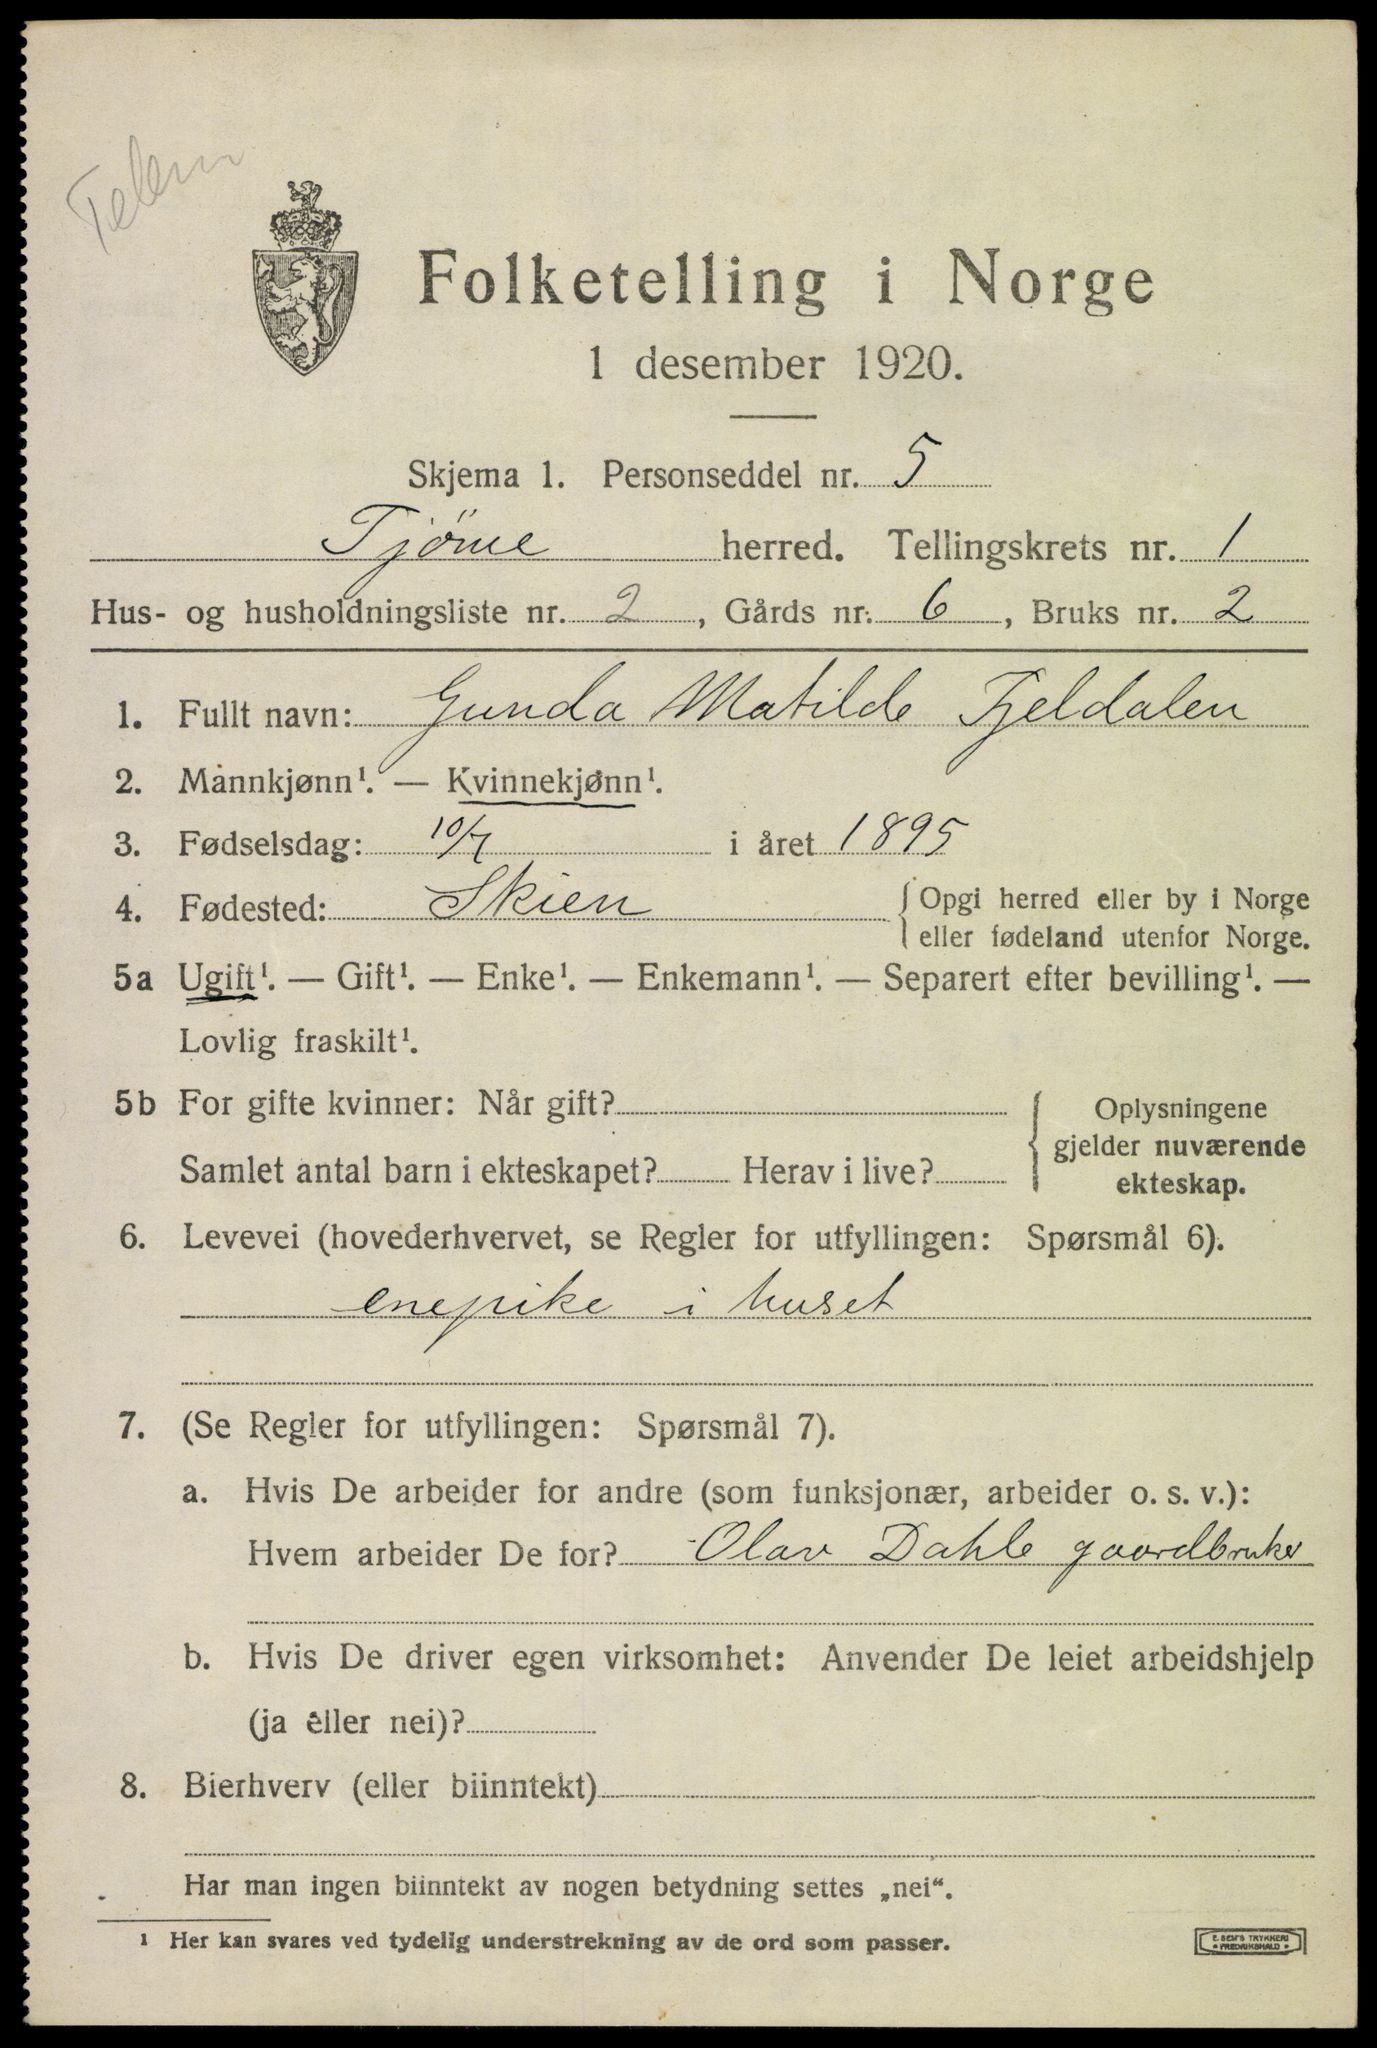 Telem
Folketelling i Norge
1 desember 1920.
Skjema 1. Personseddel nr. 5
Tjöme herred. Tellingskrets nr. 1
Hus- og husholdningsliste nr. 2, Gårds nr. 6, Bruks nr. 2
1. Fullt navn: Gunda Matilde Fjeldalen
2. Mannkjønn¹. — Kvinnekjønn¹.
3. Fødselsdag: 10/7 i året 1895
4. Fødested: Skien { Opgi herred eller by i Norge
eller fødeland utenfor Norge.
5a Ugift¹. — Gift¹. — Enke¹. — Enkemann¹. — Separert efter bevilling¹. —
Lovlig fraskilt¹.
5b For gifte kvinner: Når gift? { Oplysningene
gjelder nuværende
Samlet antal barn i ekteskapet? Herav i live? ekteskap.
6. Levevei (hovederhvervet, se Regler for utfyllingen: Spørsmål 6).
enepike i huset
7. (Se Regler for utfyllingen: Spørsmål 7).
a. Hvis De arbeider for andre (som funksjonær, arbeider o. s. v.):
Hvem arbeider De for? Olav Dahle gaardbruker
b. Hvis De driver egen virksomhet: Anvender De leiet arbeidshjelp
(ja eller nei)?
8. Bierhverv (eller biinntekt)
Har man ingen biinntekt av nogen betydning settes „nei“.
¹ Her kan svares ved tydelig understrekning av de ord som passer.
E. SEM'S TRYKKERI
• FREDRIKSHALD •